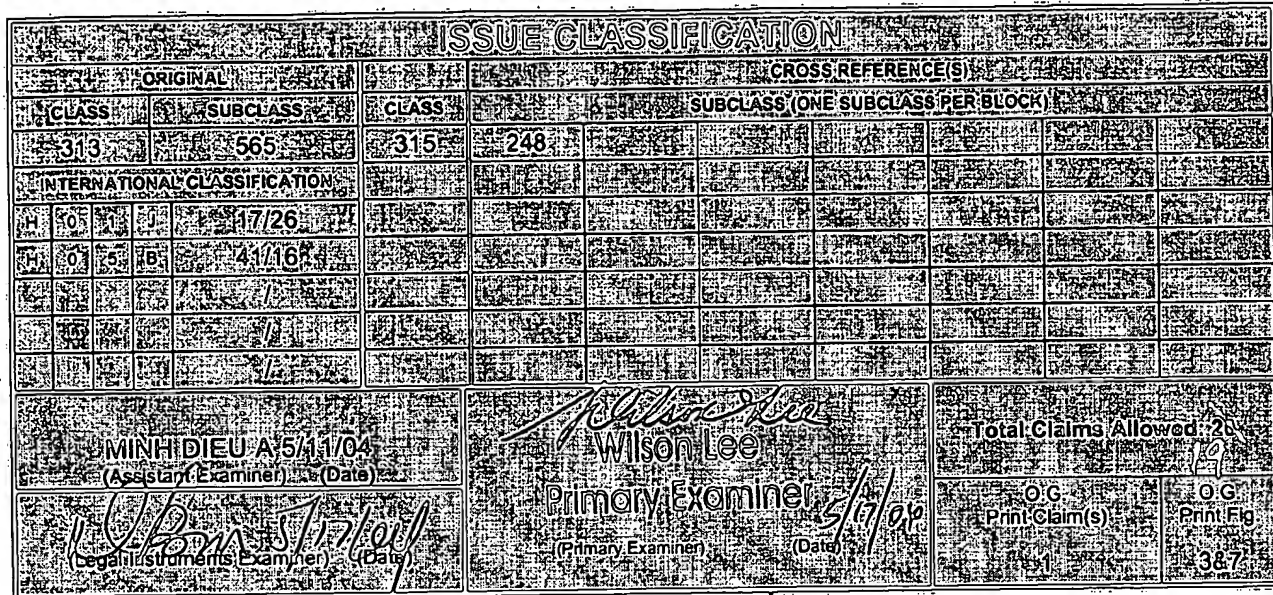 ISSUE CLASSIFICATION
ORIGINAL CROSS REFERENCE(S)
CLASS SUBCLASS CLASS SUBCLASS (ONE SUBCLASS PER BLOCK)
313 565 315 248
INTERNATIONAL CLASSIFICATION
H 0 J 17/26
H 0 5 B 41/16
/
/
/
MINH DIEU A 5/11/04
(Assistant Examiner) (Date)
5/17/04
(Legal Instruments Examiner) (Date)
Wilson Lee
Wilson Lee
Primary Examiner
5/17/04
(Primary Examiner) (Date)
Total Claims Allowed: 20
19
O.G. Print Claim(s)
1
O.G. Print Fig.
3&7